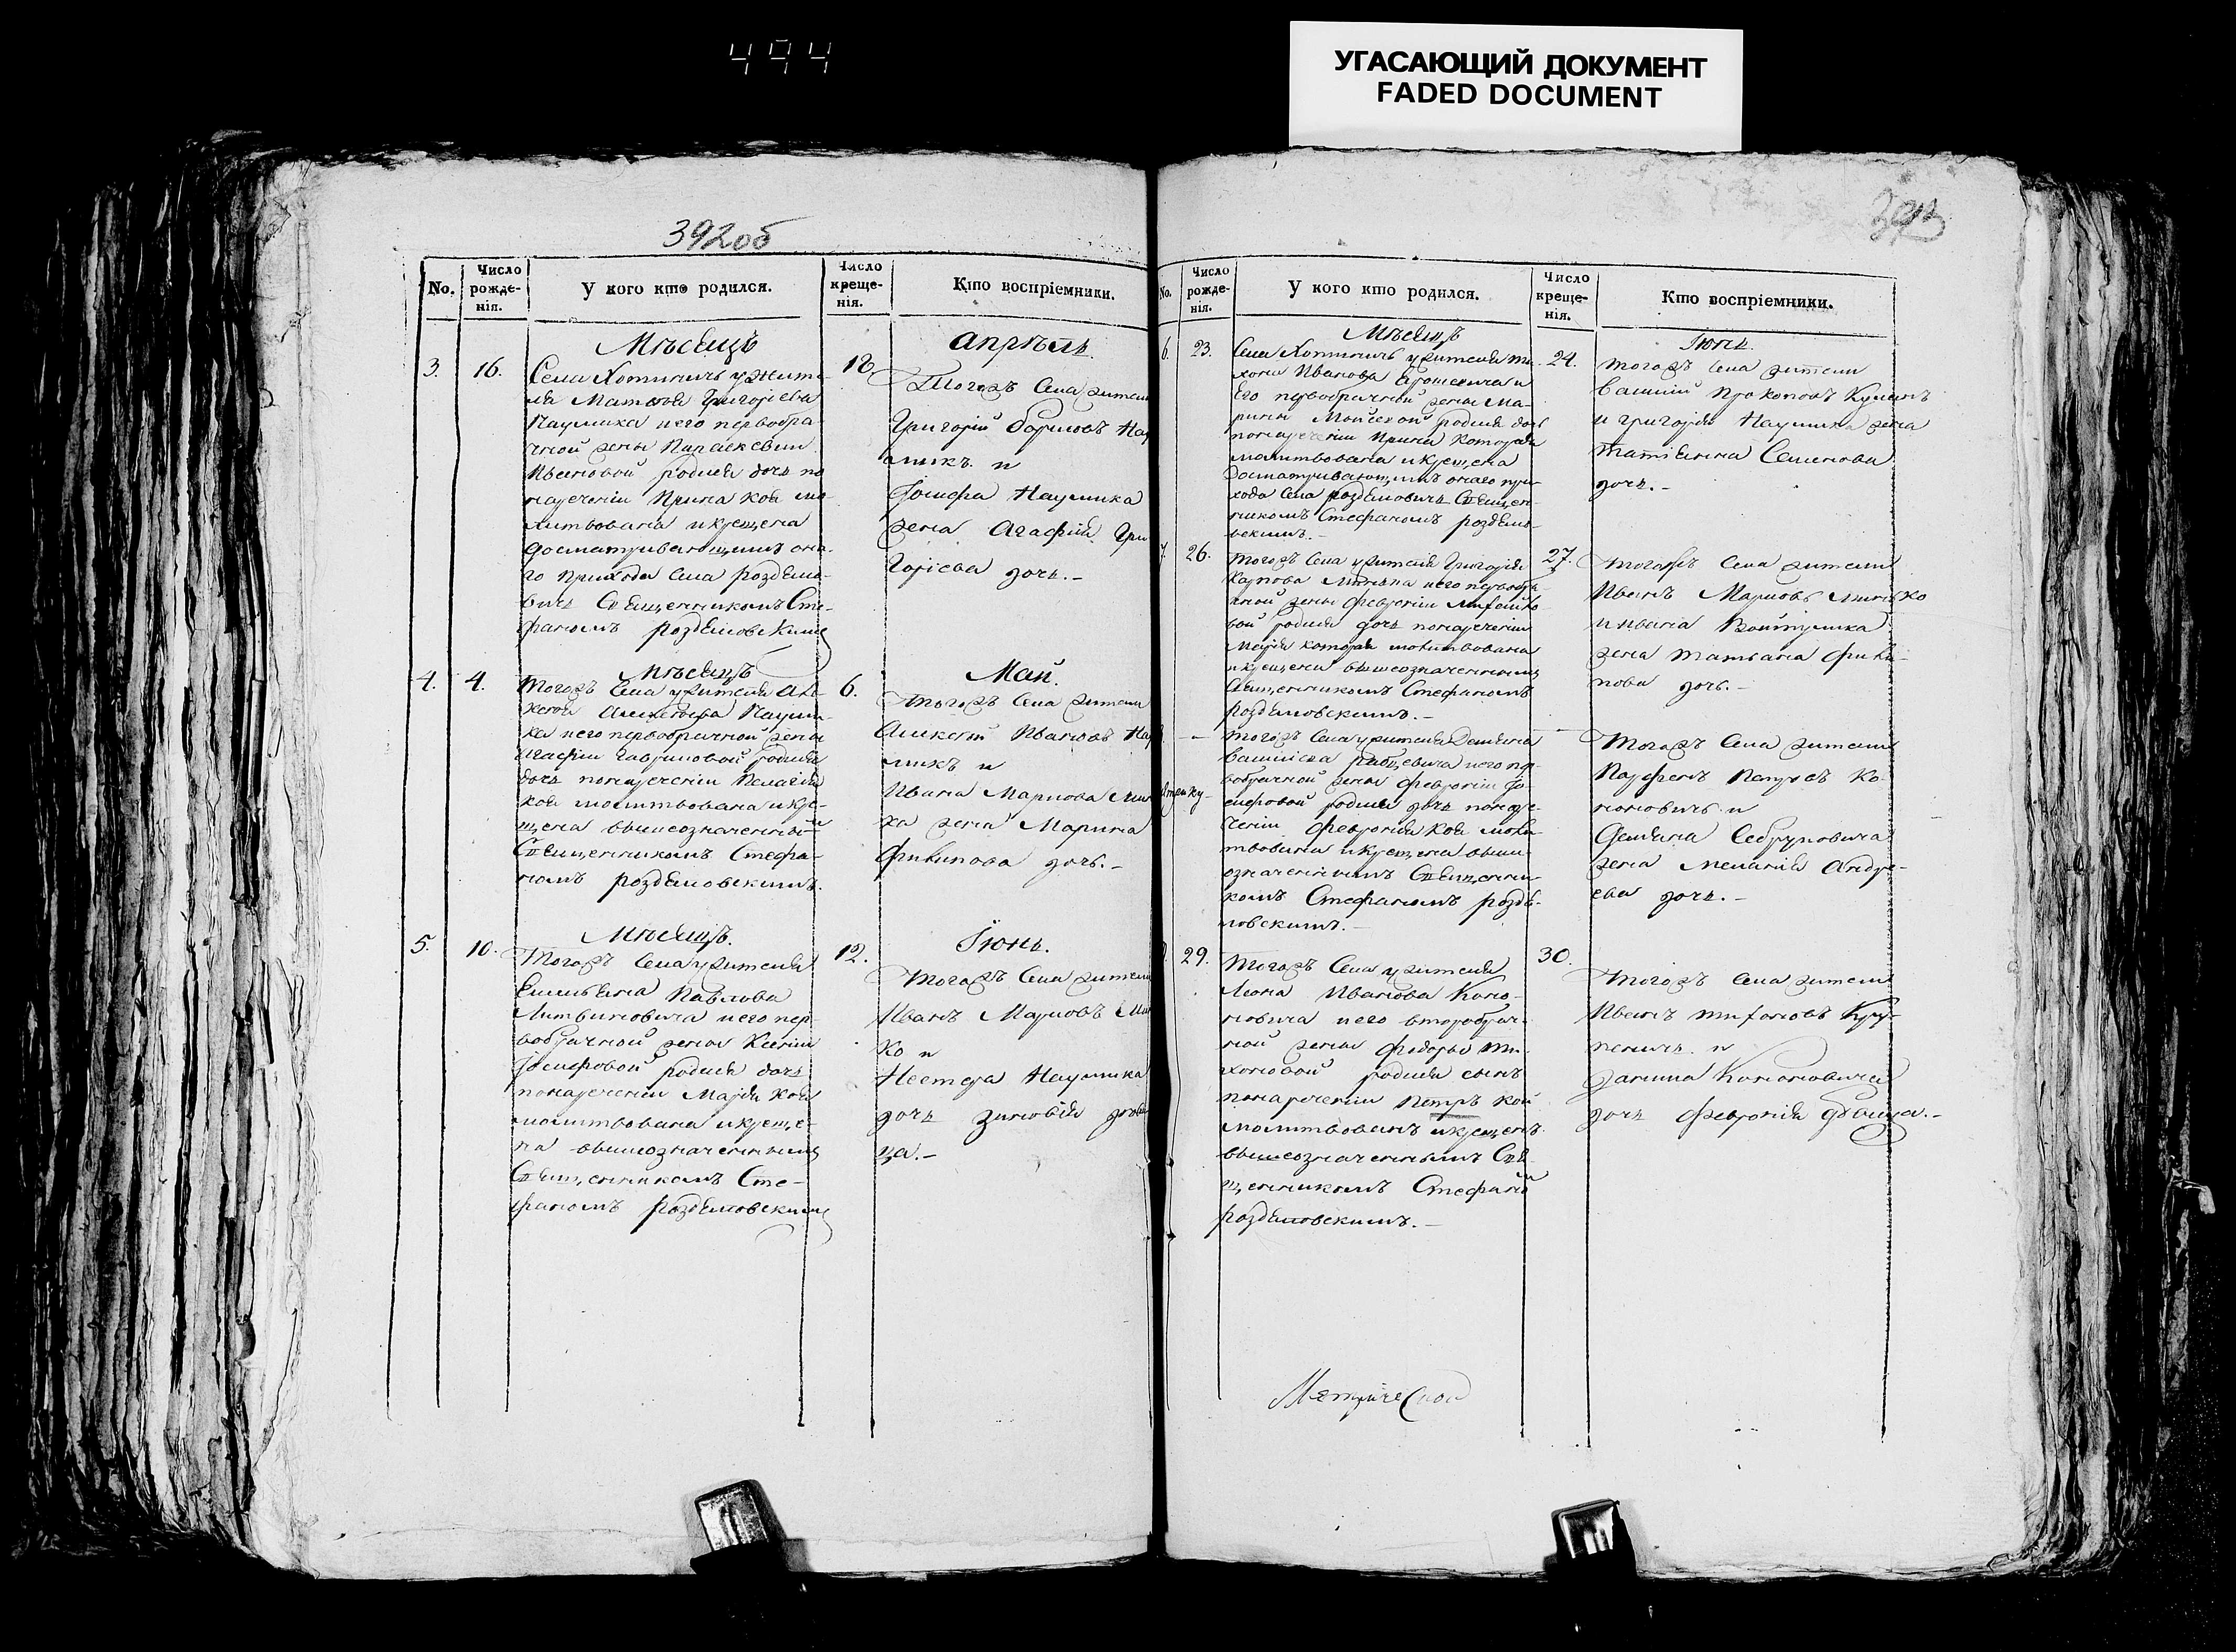 494
УГАСАЮЩИЙ ДОКУМЕНТ
FADED DOCUMENT
392об
No.
Число рожде- нія.
У кого кто родился.
Число креще- нія.
Кто воспріемники.
Мѣсяцъ
Апрѣль.
3.
16.
18
Села Хотиничъ у жите-
ля Матвѣя Григорьева
Наумика и его первобра-
чной жены Параскевіи
Ивановой родися дочь по
наречении Ирина коя мо-
литвована и крещена
досматривающимъ она-
го прихода Села Роздяло-
вичь Священникомъ Сте-
фаномъ Роздяловскимъ
Тогожъ Села жители
Григорій Борисовъ Нау
микъ и
Іосифа Наумика
жена Агафія Гри
горіева дочь.-
Мѣсяцъ
Май.
4.
4.
6.
Тогожъ Села у жителя Але
ксѣя Алексѣева Науми-
ка и его первобрачной жены
Агафіи Гавриловой родися
дочь по наречении Пелагія
коя молитвована и кре-
щена вышеозначеннымъ
Священникомъ Стефа-
номъ Роздяловскимъ.
Тогожъ Села жители
Алексѣй Ивановъ Нау
микъ и
Ивана Маркова Мин
ка жена Марина
Филипова дочь.-
Мѣсяцъ.
Іюнь.
5.
10.
12.
Тогожъ Села у жителя
Емельяна Павлова
Литвиновича и его пер-
вобрачной жены Ксеніи
Іосифовой родися дочь
по наречении Марія коя
молитвована и креще-
на вышеозначеннымъ
Священникомъ Сте-
фаномъ Роздяловскимъ
Тогожъ Села жители
Иванъ Марковъ Мин
ко и
Нестера Наумика
дочь Зиновія дѣви
ца.-
393
No.
Число рожде- нія.
У кого кто родился.
Число креще- нія.
Кто воспріемники.
Мѣсяцъ
Іюнь.
6.
23.
24.
Села Хотиничъ у жителя Ти-
хона Иванова Ерошевича и
Его первобрачной жены Ма-
рины Мойсеевой родися дочь
по наречении Ирина которая
молитвована и крещена
досматривающимъ онаго при-
хода Села Роздяловичь Священ-
никомъ Стефаномъ Роздяло-
вскимъ.-
тогожъ Села жители
Василій Прокоповъ
и Григорія Наумика жена
Татіанна Семенова
дочь.-
7.
26.
27.
Тогожъ Села у жителя Григорія
Карпова Минька и его первобра-
чной жены Февроніи
вой родися дочь по наречении
Марія которая молитвована
и крещена вышеозначеннымъ
Священникомъ Стефаномъ
Роздяловскимъ.-
Тогожъ Села жители
Иванъ Марковъ Минько
и Ивана Войтулика
жена Татьяна Фили-
пова дочь.-
Тогожъ Села у жителя Демьяна
и его пер-
вобрачной жены Февроніи Іо-
сифовой родися дочь по наре-
чении Февронія коя моли-
твована и крещена выше
означеннымъ Священни-
комъ Стефаномъ Роздя-
ловскимъ.-
Тогожъ Села жители
Парфенъ Ко-
ноновичь и
Демьяна
жена Меланія Андре-
ева дочь.-
29.
30.
Тогожъ Села у жителя
Леона Иванова Коно-
новича и его второбрач-
ной жены Федоры Ти-
хоновой родися сынъ
по наречении Петръ кой
молитвованъ и крещенъ
вышеозначеннымъ Свя
щенникомъ Стефаномъ
Роздяловскимъ.-
Тогожъ Села жители
Иванъ Тихоновъ
и
Данила Кононовича
дочь Февронія дѣвица.-